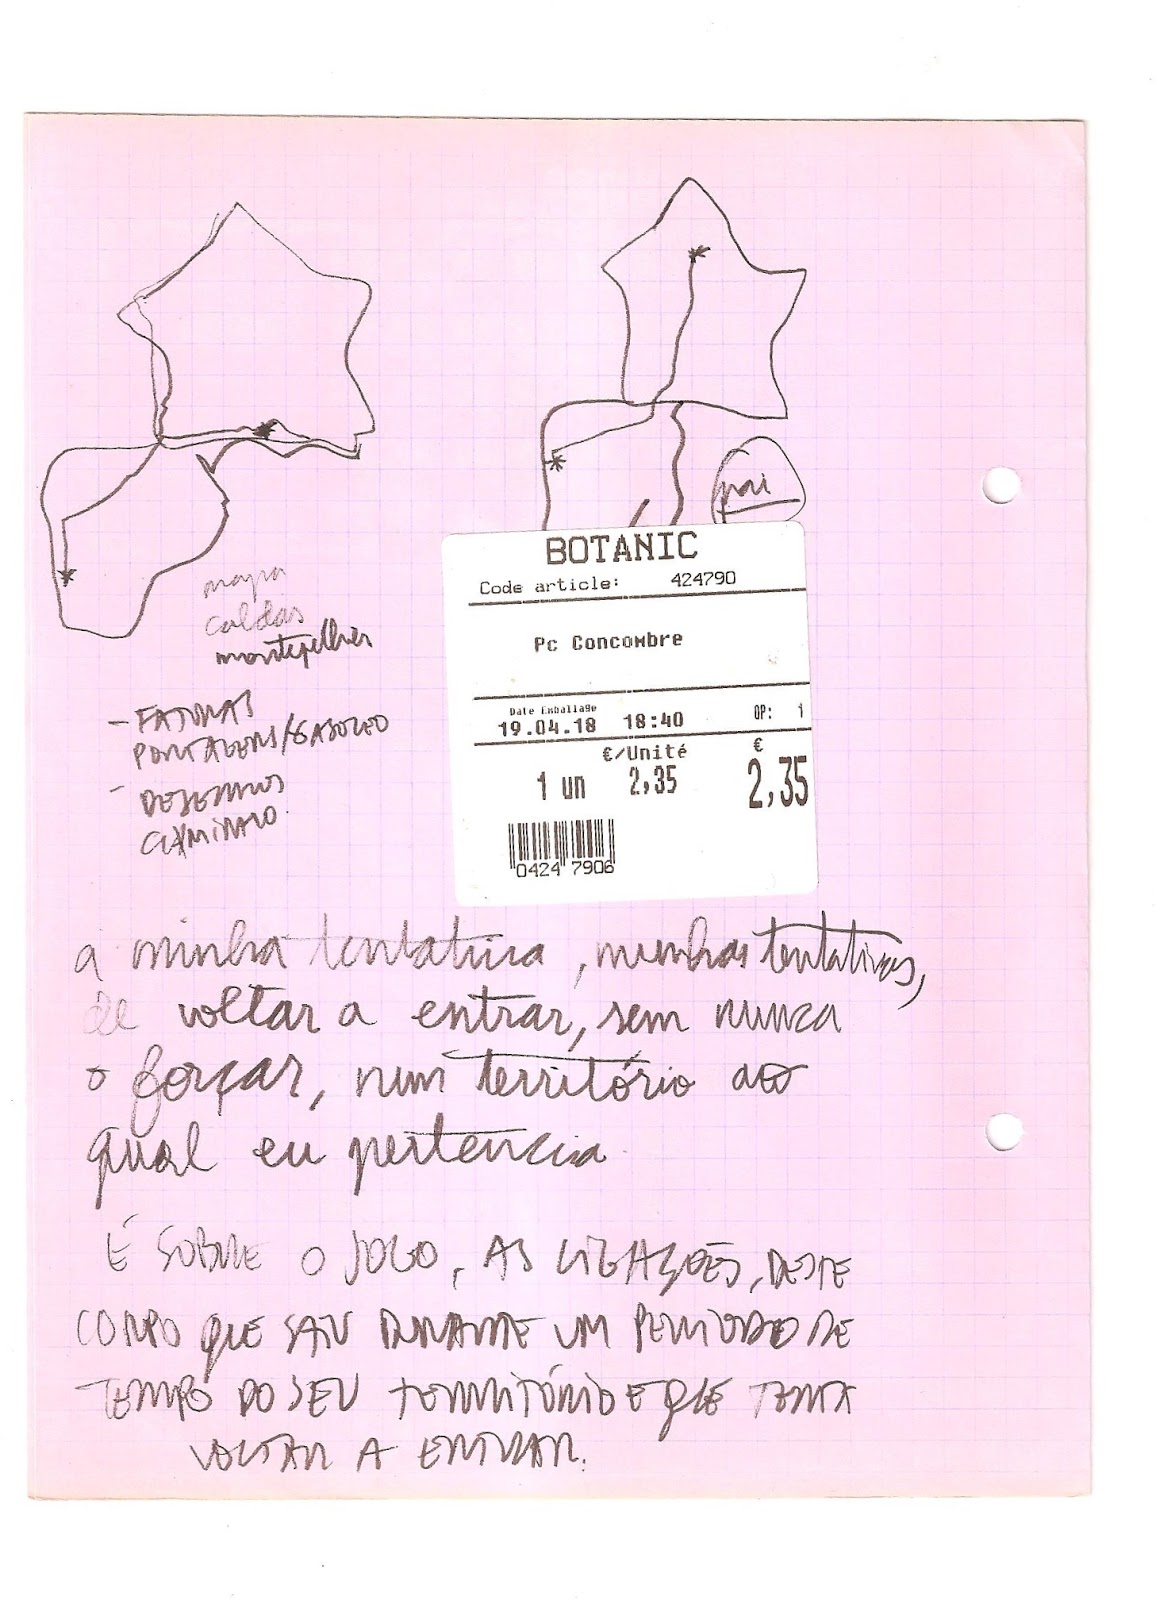 pai
BOTANIC
Code article: 424790
Pc Concombre
Date Emballage
19.04.18 18:40 OP: 1
€/Unité €
1 un 2,35 2,35
0424 7906
mapa
caldas
montepellier
- FATURAS
PORTAGENS/GASOLEO
- DESENHOS
CAMINHO
a minha tentativa, minhas tentativas,
de voltar a entrar, sem nunca
o forçar, num território ao
qual eu pertencia
É SOBRE O JOGO, AS LIGAÇÕES, DESTE
CORPO QUE SAIU DURANTE UM PERIODO DE
TEMPO DO SEU TERRITÓRIO E QUE TENTA
VOLTAR A ENTRAR.